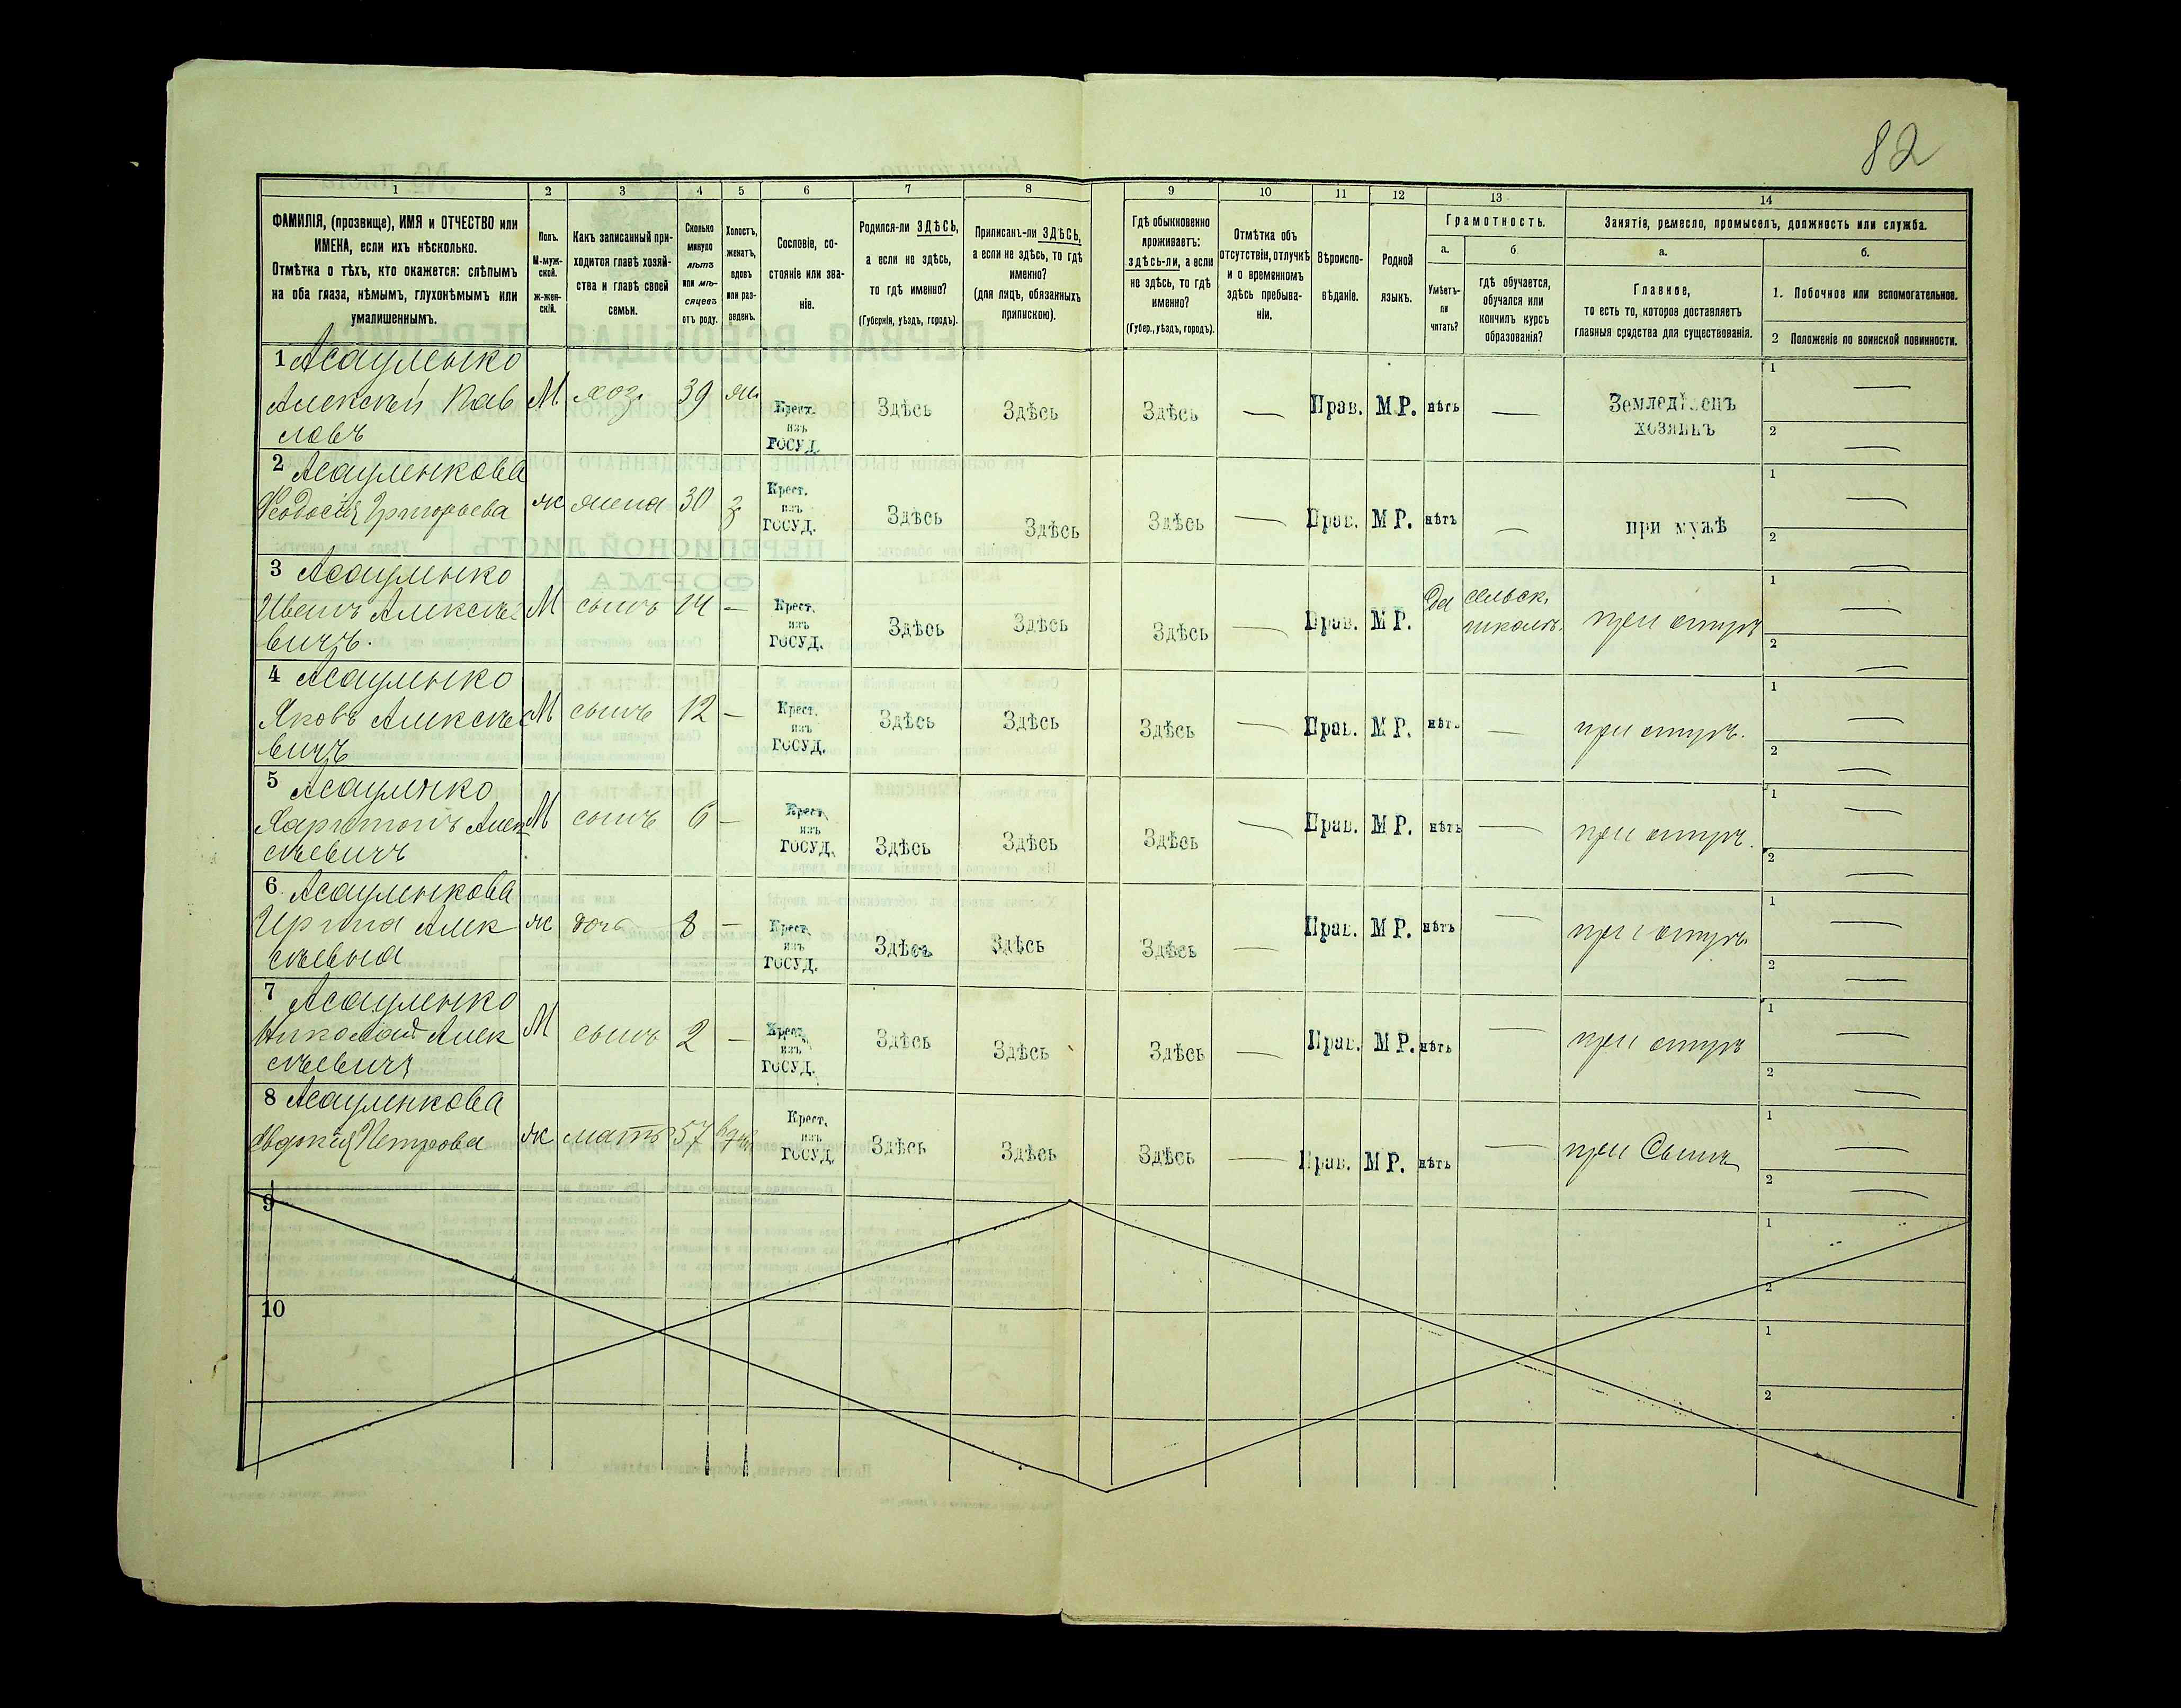 82
1 2 3 4 5 6 7 8 9 10 11 12 13 14
ФАМИЛІЯ, (прозвище), ИМЯ и ОТЧЕСТВО или
ИМЕНА, если ихъ нѣсколько.
Отмѣтка о тѣхъ, кто окажется: слѣпымъ
на оба глаза, нѣмымъ, глухонѣмымъ или
умалишеннымъ.
Полъ.
М-муж-
ской.
ж-жен-
скій.
Какъ записанный при-
ходится главѣ хозяй-
ства и главѣ своей
семьи.
Сколько
минуло
лѣтъ
или мѣ-
сяцевъ
отъ роду.
Холостъ,
женатъ,
вдовъ
или раз-
веденъ.
Сословіе, со-
стояніе или зва-
ніе.
Родился-ли ЗДѢСЬ,
а если не здѣсь,
то гдѣ именно?
(Губернія, уѣздъ, городъ).
Приписанъ-ли ЗДѢСЬ,
а если не здѣсь, то гдѣ
именно?
(для лицъ, обязанныхъ
припискою).
Гдѣ обыкновенно
проживаетъ:
здѣсь-ли, а если
не здѣсь, то гдѣ
именно?
(Губер., уѣздъ, городъ).
Отмѣтка объ
отсутствіи, отлучкѣ
и о временномъ
здѣсь пребыва-
ніи.
Вѣроиспо-
вѣданіе.
Родной
языкъ.
Грамотность.
а.
Умѣетъ-
ли
читать?
б.
гдѣ обучается,
обучался или
кончилъ курсъ
образованія?
Занятія, ремесло, промыселъ, должность или служба.
а.
Главное,
то есть то, которое доставляетъ
главныя средства для существованія.
б.
1. Побочное или вспомогательное.
2 Положеніе по воинской повинности.
1 Асауленко
Алексѣй Пав
ловъ
М хоз. 39 жн
Крест.
изъ
ГОСУД.
Здѣсь Здѣсь Здѣсь — Прав. М Р. нѣтъ —
Земледѣлецъ
хозяинъ
1 —
2 —
2 Асауленкова
Ѳеодосія Григорьева
ж жена 30 з
Крест.
изъ
ГОСУД.
Здѣсь Здѣсь Здѣсь — Прав. М Р. нѣтъ — при мужѣ
1 —
2 —
3 Асауленко
Иванъ Алексѣе
вичъ.
М сынъ 14 —
Крест.
изъ
ГОСУД.
Здѣсь Здѣсь Здѣсь — Прав. М Р. да
сельск.
школѣ.
при отцѣ
1 —
2 —
4 Асауленко
Яковъ Алексѣе
вичъ
М сынъ 12 —
Крест.
изъ
ГОСУД.
Здѣсь Здѣсь Здѣсь — Прав. М Р. нѣтъ — при отцѣ.
1 —
2 —
5 Асауленко
Харитонъ Алек
сѣевичъ
М сынъ 6 —
Крест.
изъ
ГОСУД.
Здѣсь Здѣсь Здѣсь — Прав. М Р. нѣтъ — при отцѣ.
1 —
2 —
6 Асауленкова
Ирина Алек
сѣевна
ж дочь 8 —
Крест.
изъ
ГОСУД.
Здѣсь Здѣсь Здѣсь — Прав. М Р. нѣтъ — при отцѣ
1 —
2 —
7 Асауленко
Николай Алек
сѣевичъ
М сынъ 2 —
Крест.
изъ
ГОСУД.
Здѣсь Здѣсь Здѣсь — Прав. М Р. нѣтъ — при отцѣ
1 —
2 —
8 Асауленкова
Евдокія Петрова
ж мать 57
Крест.
изъ
ГОСУД.
Здѣсь Здѣсь Здѣсь — Прав. М Р. нѣтъ — при Сынѣ
1
2 —
9
1
2
10
1
2